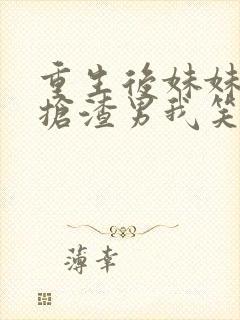 重生後妹妹
搶渣男我笑
薄幸